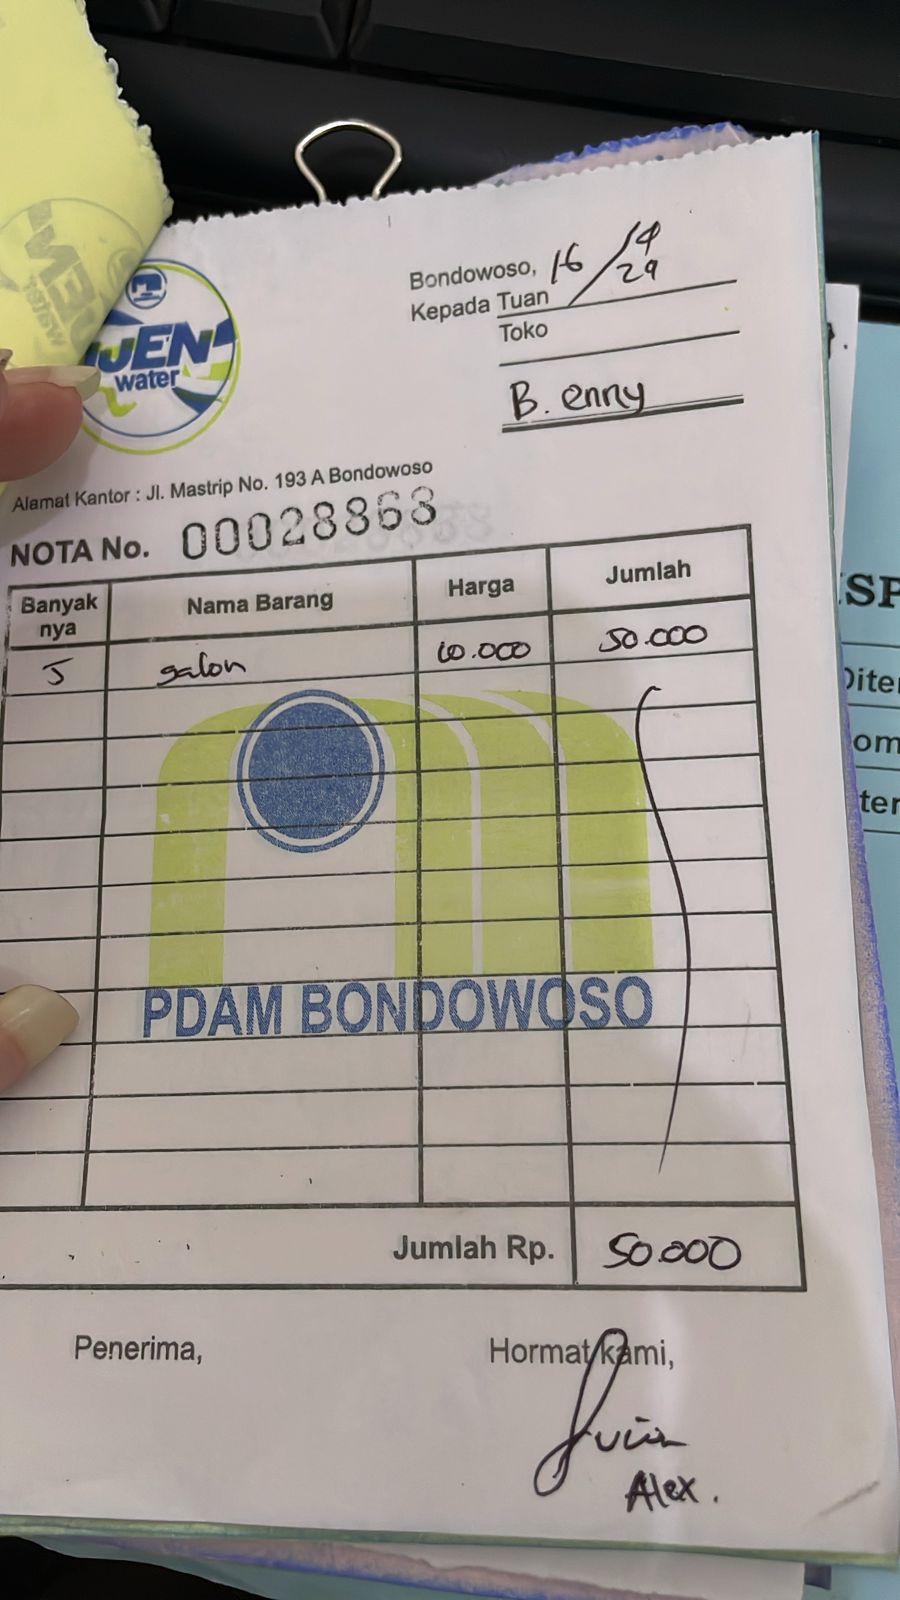 IJEN
water
Bondowoso, 16/4
29
Kepada Tuan
Toko
B. enny
Alamat Kantor : Jl. Mastrip No. 193 A Bondowoso
NOTA No. 00028868
Banyak nya Nama Barang Harga Jumlah
5 galon 10.000 50.000
PDAM BONDOWOSO
Jumlah Rp. 50.000
Penerima, Hormat kami,
Alex.